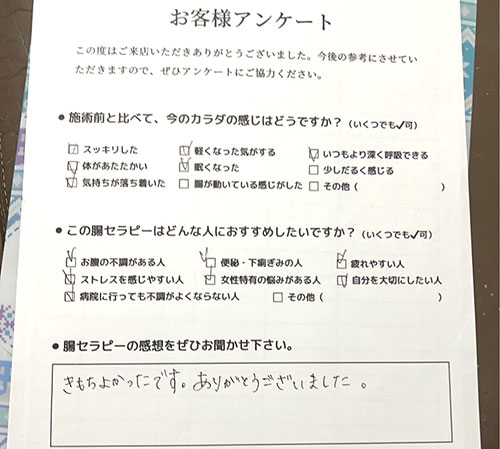 お客様アンケート
この度はご来店いただきありがとうございました。今後の参考にさせてい
ただきますので、ぜひアンケートにご協力ください。
● 施術前と比べて、今のカラダの感じはどうですか？（いくつでも✓可）
☑ スッキリした ☑ 軽くなった気がする ☑ いつもより深く呼吸できる
☑ 体があたたかい ☑ 眠くなった □ 少しだるく感じる
☑ 気持ちが落ち着いた □ 腸が動いている感じがした □ その他（ ）
● この腸セラピーはどんな人におすすめしたいですか？（いくつでも✓可）
☑ お腹の不調がある人 ☑ 便秘・下痢ぎみの人 ☑ 疲れやすい人
☑ ストレスを感じやすい人 ☑ 女性特有の悩みがある人 ☑ 自分を大切にしたい人
☑ 病院に行っても不調がよくならない人 □ その他（ ）
● 腸セラピーの感想をぜひお聞かせ下さい。
きもちよかったです。ありがとうございました。